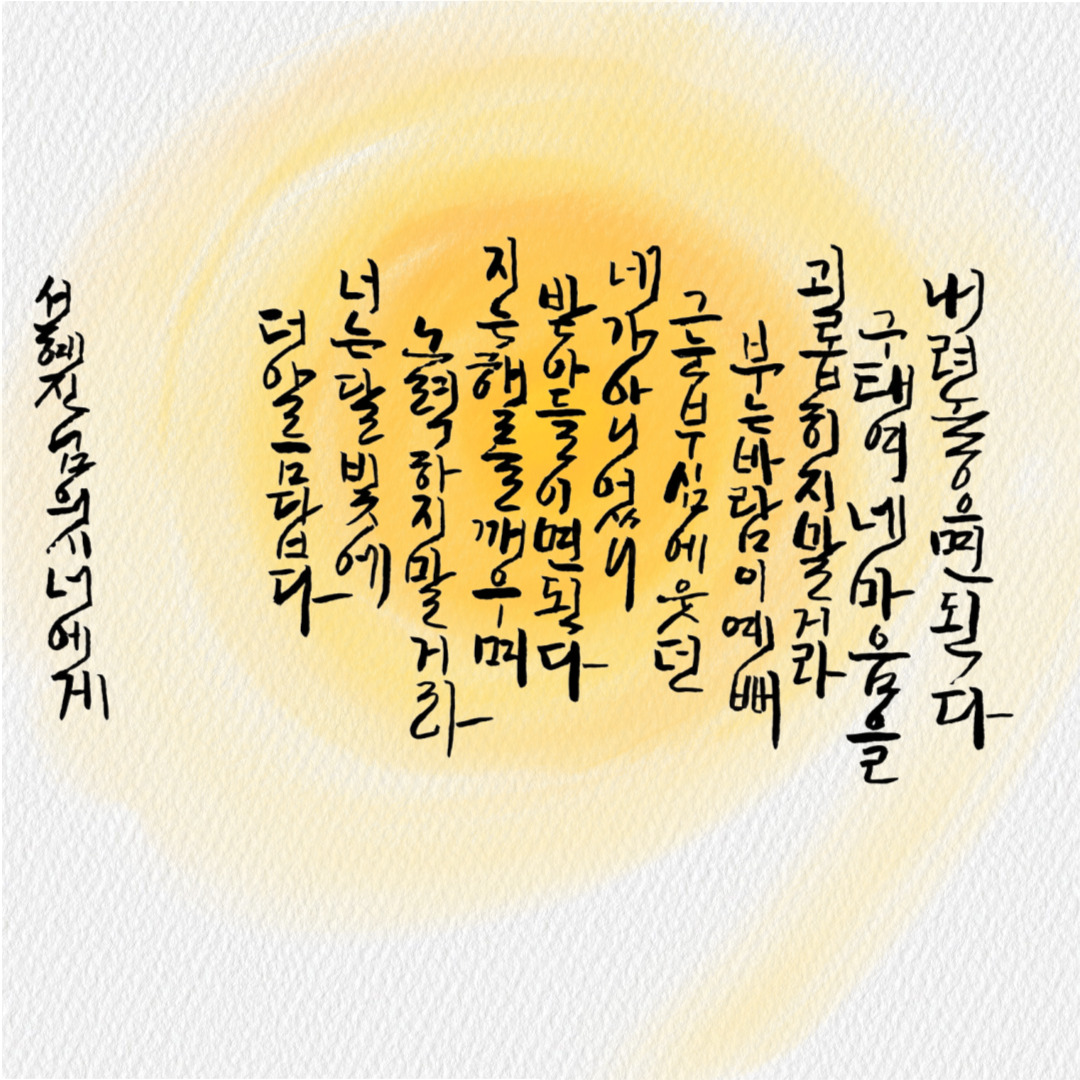 내려놓으면 된다
구태여 네 마음을
괴롭히지 말거라
부는 바람이 예뻐
그 눈부심에 웃던
네가 아니였니
받아들이면 된다
지는 해를 깨우며
노력하지 말거라
너는 달빛에
더 아름답다
서혜진 님의 시 너에게